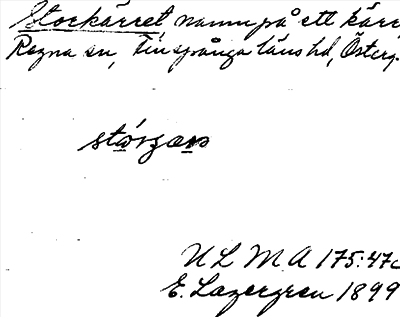 Stockärret namn på ett kärr
Regna sn, Finspånga läns hd, Österg.
ULMA 175:47c
E. Lagergren 1899